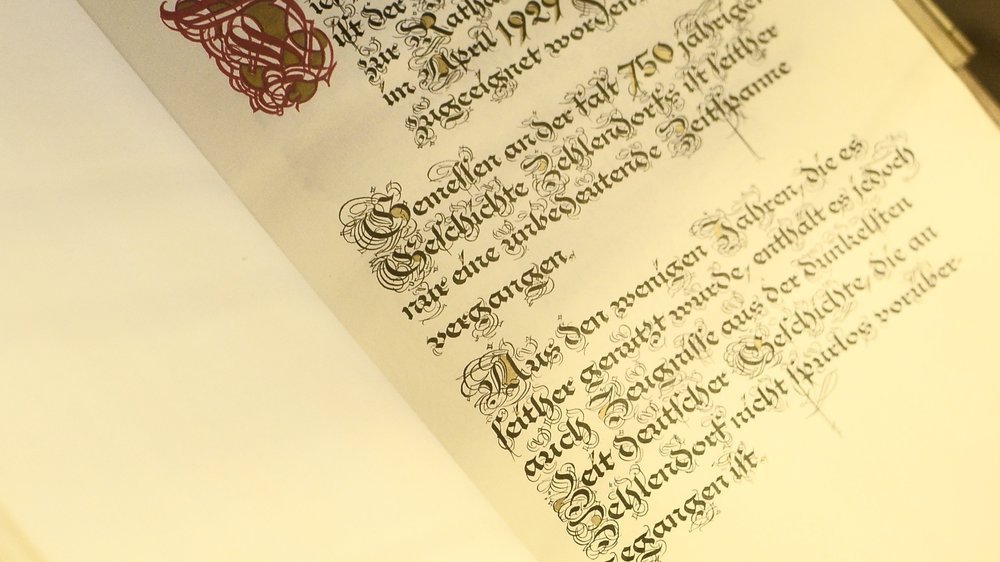 ist der
zur Rathau
im April 1929
zugeeignet worden.
Gemessen an der fast 750 jährigen
Geschichte Zehlendorfs ist seither
nur eine unbedeutende Zeitspanne
vergangen.
Aus den wenigen Jahren, die es
seither genutzt wurde, enthält es jedoch
auch Zeugnisse aus der dunkelsten
Zeit deutscher Geschichte, die an
Zehlendorf nicht spurlos vorüber-
gegangen ist.